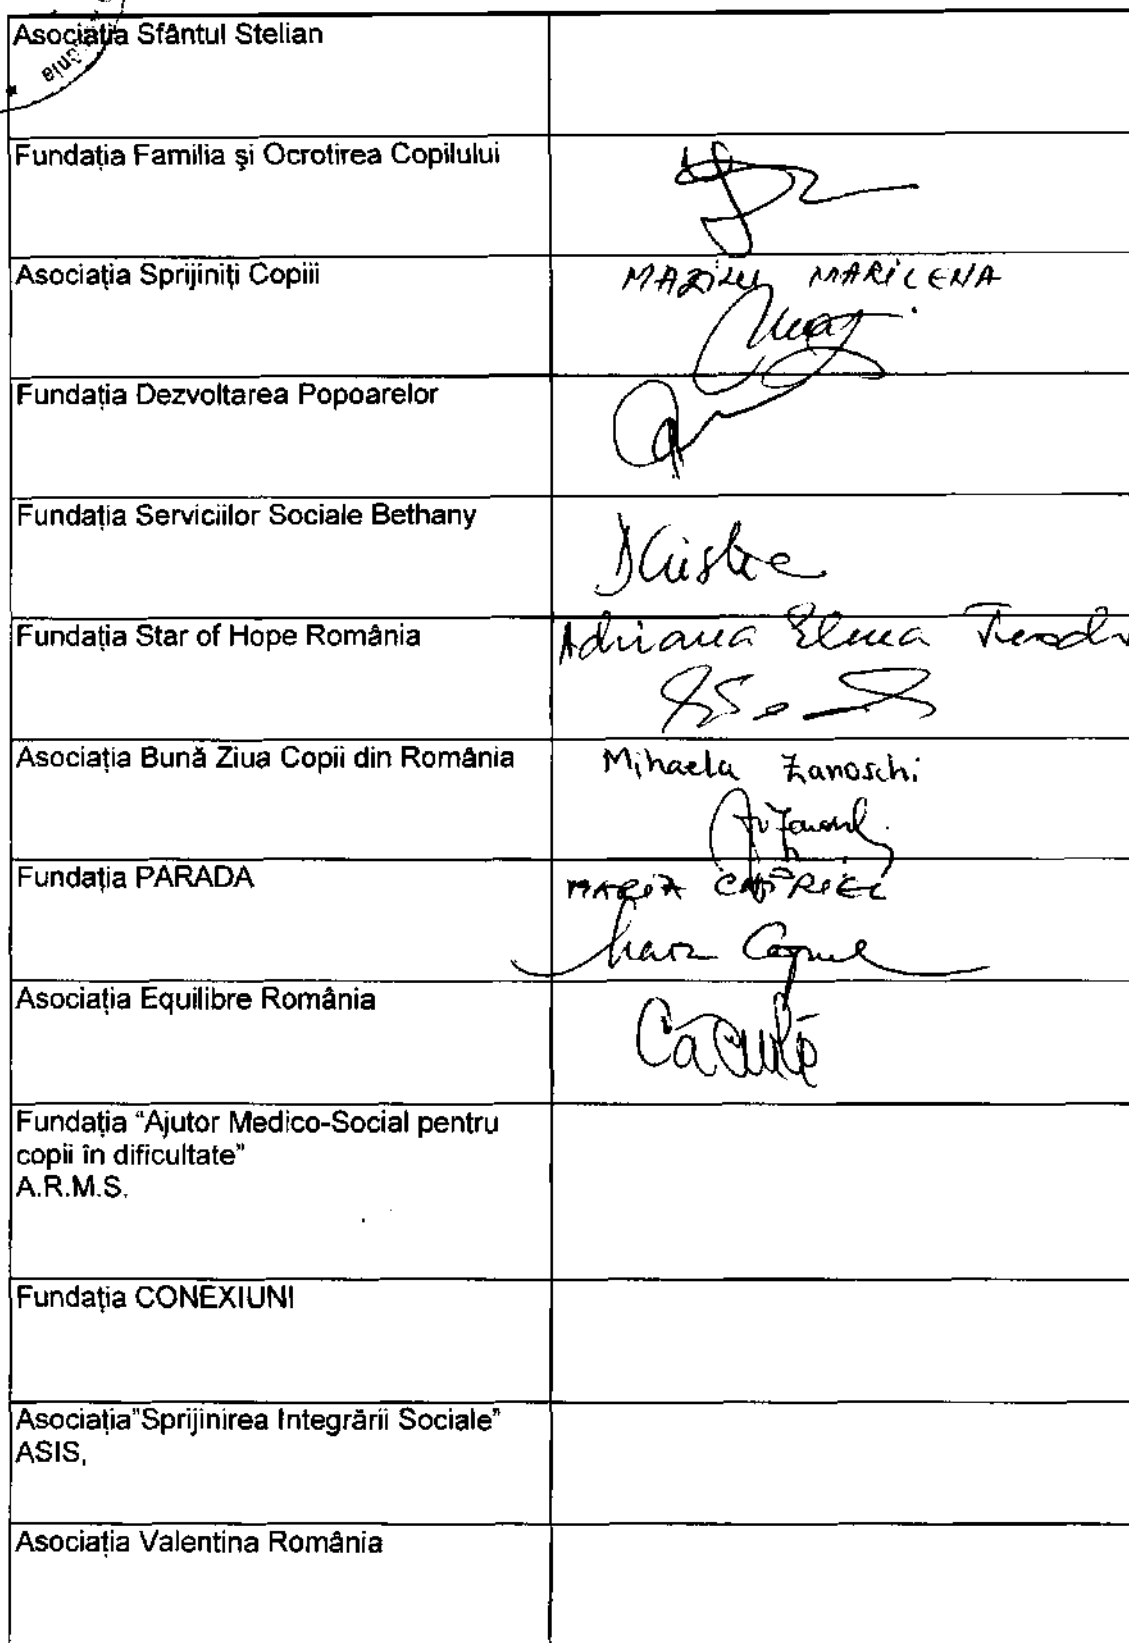 Asociația Sfântul Stelian
Fundația Familia şi Ocrotirea Copilului
Asociația Sprijiniți Copiii
MAZILU MARILENA
Fundația Dezvoltarea Popoarelor
Fundația Serviciilor Sociale Bethany
Fundația Star of Hope România
Adriana Elena
Asociația Bună Ziua Copii din România
Mihaela Zanoschi
Fundația PARADA
Asociația Equilibre România
Fundația “Ajutor Medico-Social pentru
copii în dificultate”
A.R.M.S.
Fundația CONEXIUNI
Asociația”Sprijinirea Integrării Sociale”
ASIS,
Asociația Valentina România